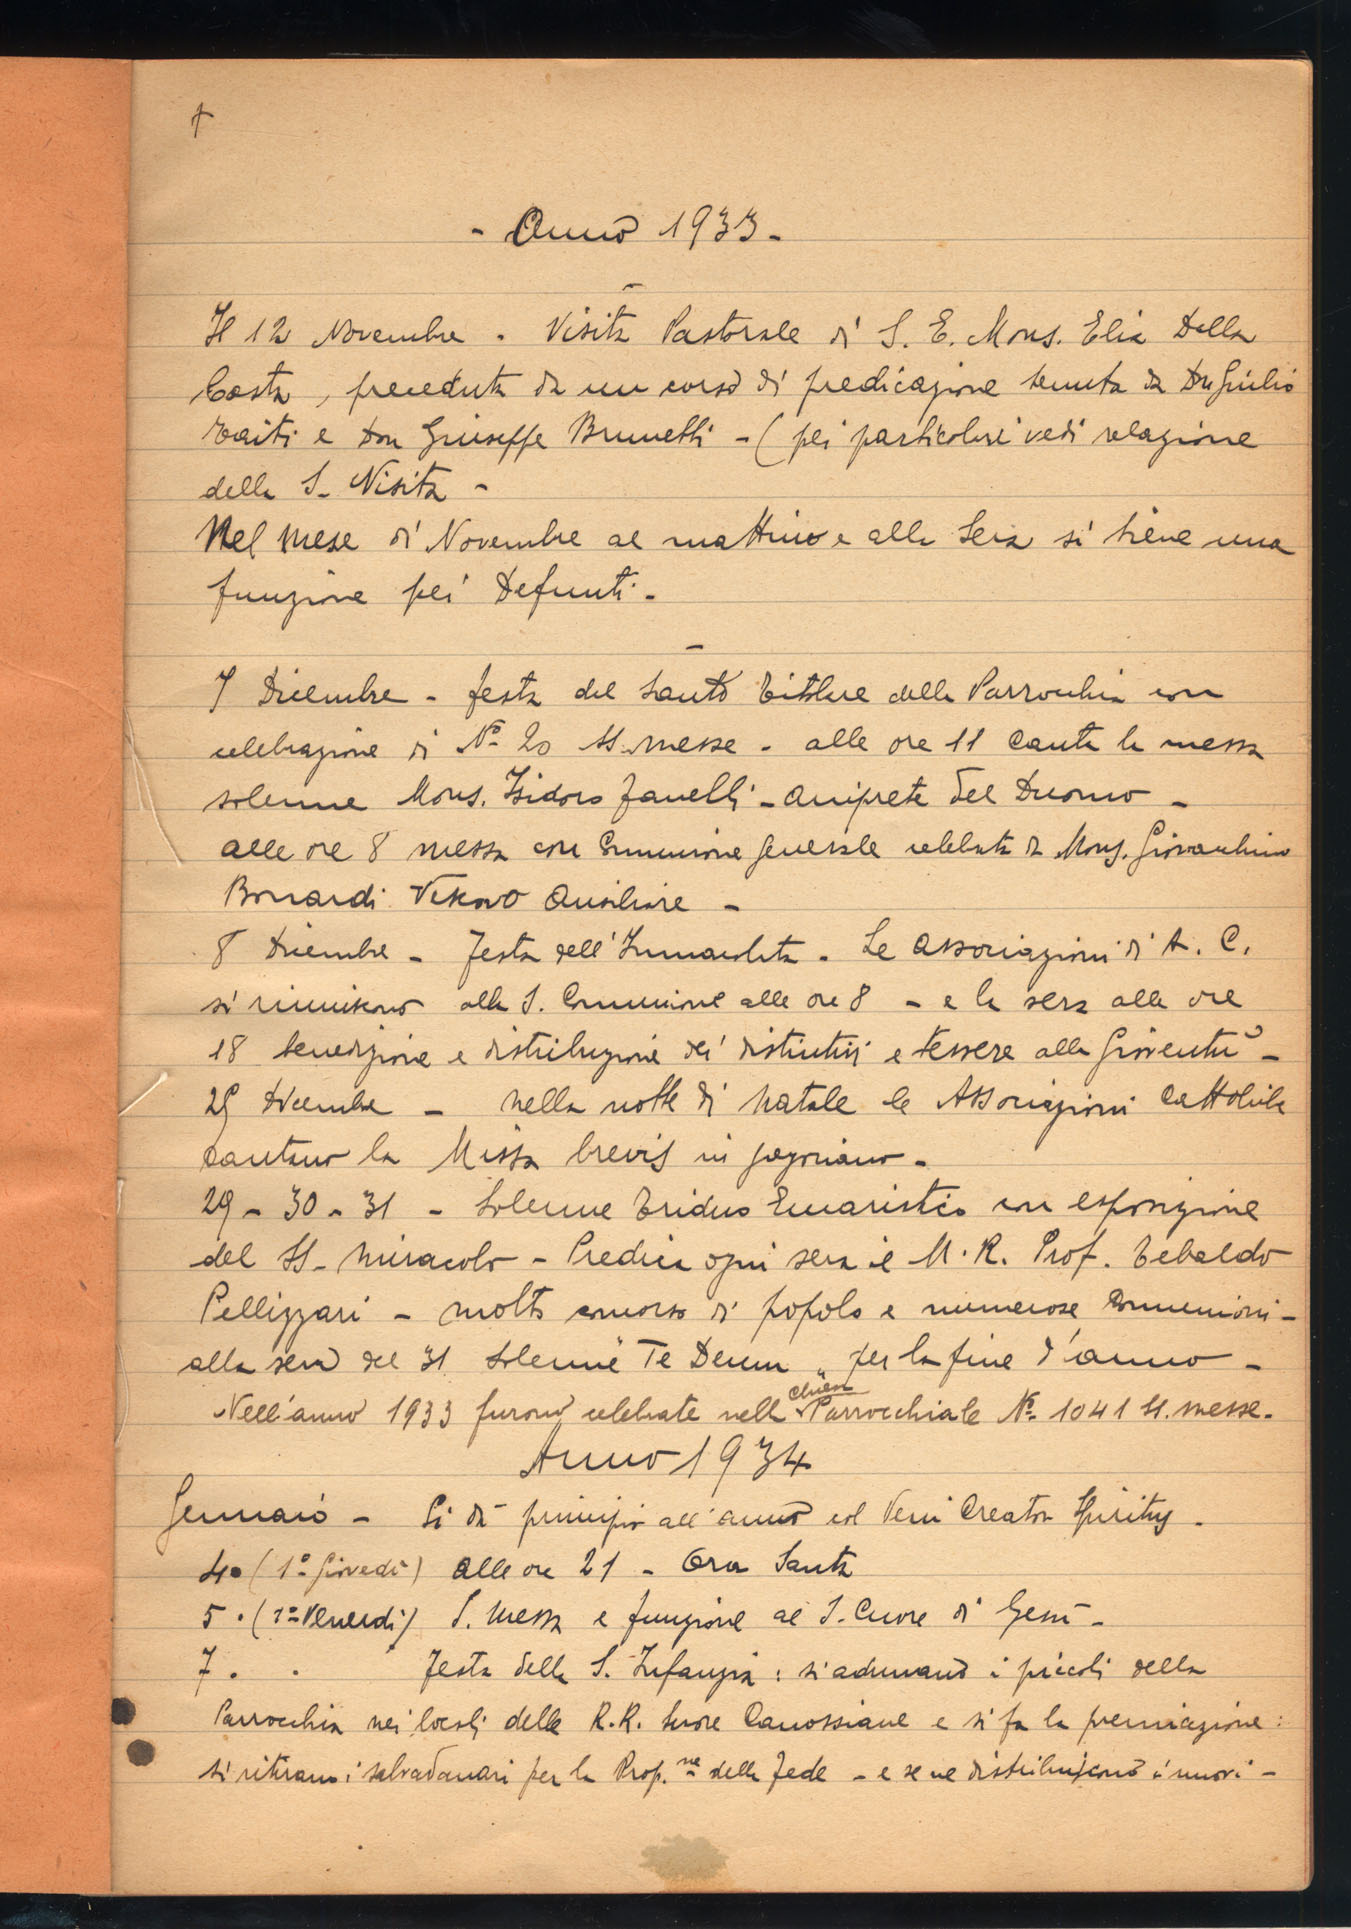 †
- Anno 1933 -
Il 12 Novembre - Visita Pastorale di S. E. Mons. Elia Della
Costa, preceduta da un corso di predicazione tenuta da Don Giulio
e Don Giuseppe Brunetti - ( pei particolari vedi relazione
della S. Visita -
Nel mese di Novembre al mattino e alla sera si tiene una
funzione pei Defunti -
7 Dicembre - festa del Santo Titolare della Parrocchia con
celebrazione di No. 20 SS. messe - alle ore 11 canta la messa
solenne Mons. Isidoro Zanelli - Arciprete del Duomo -
alle ore 8 messa con Comunione generale celebrata da Mons. Giovacchino
Bonardi Vescovo Ausiliare -
8 Dicembre - festa dell'Immacolata - Le Associazioni di A. C.
si riuniscono alla S. Comunione alle ore 8 - e la sera alle ore
18 benedizione e distribuzione dei distintivi e tessere alla Gioventù -
25 Dicembre - nella notte di Natale le Associazioni Cattoliche
cantano la Missa brevis in gregoriano -
29 - 30 - 31 - Solenne Triduo Eucaristico con esposizione
del SS. Miracolo - Predica ogni sera il M. R. Prof. Tebaldo
Pellizzari - molto concorso di popolo e numerose Comunioni -
alla sera del 31 solenne Te Deum per la fine d'anno -
Nell'anno 1933 furono celebrate nella chiesa Parrocchiale No. 1041 SS. messe.
Anno 1934
Gennaio - Si dà principio all'anno col Veni Creator Spiritus -
4 (1o Giovedì) alle ore 21 - Ora Santa
5 . (1o Venerdì) S. messa e funzione al S. Cuore di Gesù -
7 . . festa della S. Infanzia : si adunano i piccoli della
Parrocchia nei locali delle R.R. Suore Canossiane e si fa la premiazione :
si ritirano i salvadanari per la Prop.ne della Fede - e se ne distribuiscono i nuovi -